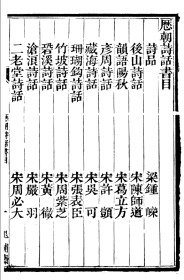 歷朝詩話書目
詩品 梁鍾嶸
後山詩話 宋陳師道
韻語陽秋 宋葛立方
彥周詩話 宋許顗
藏海詩話 宋吳可
珊瑚鉤詩話 宋張表臣
竹坡詩話 宋周紫芝
䂬溪詩話 宋黃徹
滄浪詩話 宋嚴羽
二老堂詩話 宋周必大